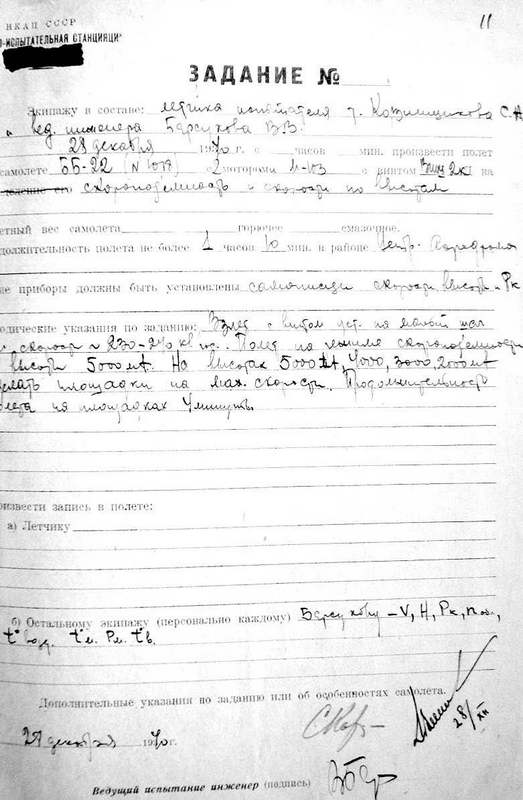 НКАП СССР
О-ИСПЫТАТЕЛЬНАЯ СТАНЦИЯЦИ
11
ЗАДАНИЕ №
Экипажу в составе: летчика испытателя т. С.А
и вед. инженера Барсукова В.В.
28 декабря 1940 г. с часов мин. произвести полет
самолете ББ-22 (N 1019) с 2 моторами М-103 с винтом на
скороподъемность и скорости по высотам
етный вес самолета горючее смазочное.
должительность полета не более 1 часов 10 мин. в районе центр. Аэродрома
ие приборы должны быть установлены самописцы скорости, высоты, Рк
одические указания по заданию: Взлет с винтом уст. на малый шаг
скорости 230-240 км. Полет на режиме скороподъемности
высоты 5000 mt. На высотах 5000 mt, 4000, 3000, 2000 mt
делать площадки на мах. скорости. Продолжительность
лета на площадках 4 минуты.
оизвести запись в полете:
а) Летчику
б) Остальному экипажу (персонально каждому) Барсукову – V, H, Рк,
t° вод. t°м. Рм. t°в.
Дополнительные указания по заданию или об особенностях самолета.
28/XII
декабря 1940г.
Ведущий испытание инженер (подпись)